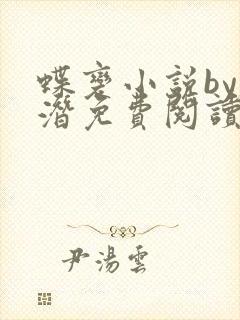 蝶裳小説by
潛免費閱讀
尹湯雲